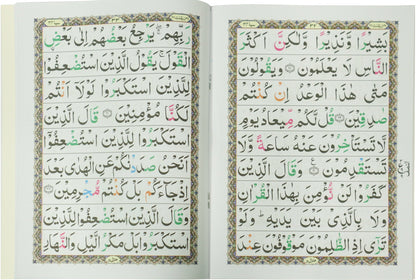 بَشِيْرًا وَّنَذِيْرًا وَّلٰكِنَّ اَكْثَرَ
النَّاسِ لَا يَعْلَمُوْنَ وَيَقُوْلُوْنَ
مَتٰى هٰذَا الْوَعْدُ اِنْ كُنْتُمْ
صٰدِقِيْنَ قُلْ لَّكُمْ مِّيْعَادُ يَوْمٍ
لَّا تَسْتَاْخِرُوْنَ عَنْهُ سَاعَةً وَّلَا
تَسْتَقْدِمُوْنَ وَقَالَ الَّذِيْنَ
كَفَرُوْا لَنْ نُّؤْمِنَ بِهٰذَا الْقُرْاٰنِ
وَلَا بِالَّذِيْ بَيْنَ يَدَيْهِ وَلَوْ
تَرٰٓى اِذِ الظّٰلِمُوْنَ مَوْقُوْفُوْنَ عِنْدَ
رَبِّهِمْ يَرْجِعُ بَعْضُهُمْ اِلٰى بَعْضِ
الْقَوْلَ يَقُوْلُ الَّذِيْنَ اسْتُضْعِفُوْا
لِلَّذِيْنَ اسْتَكْبَرُوْا لَوْلَآ اَنْتُمْ
لَكُنَّا مُؤْمِنِيْنَ قَالَ الَّذِيْنَ
اسْتَكْبَرُوْا لِلَّذِيْنَ اسْتُضْعِفُوْٓا
اَنَحْنُ صَدَدْنٰكُمْ عَنِ الْهُدٰى بَعْدَ
اِذْ جَآءَكُمْ بَلْ كُنْتُمْ مُّجْرِمِيْنَ
وَقَالَ الَّذِيْنَ اسْتُضْعِفُوْا لِلَّذِيْنَ
اسْتَكْبَرُوْا بَلْ مَكْرُ الَّيْلِ وَالنَّهَارِ